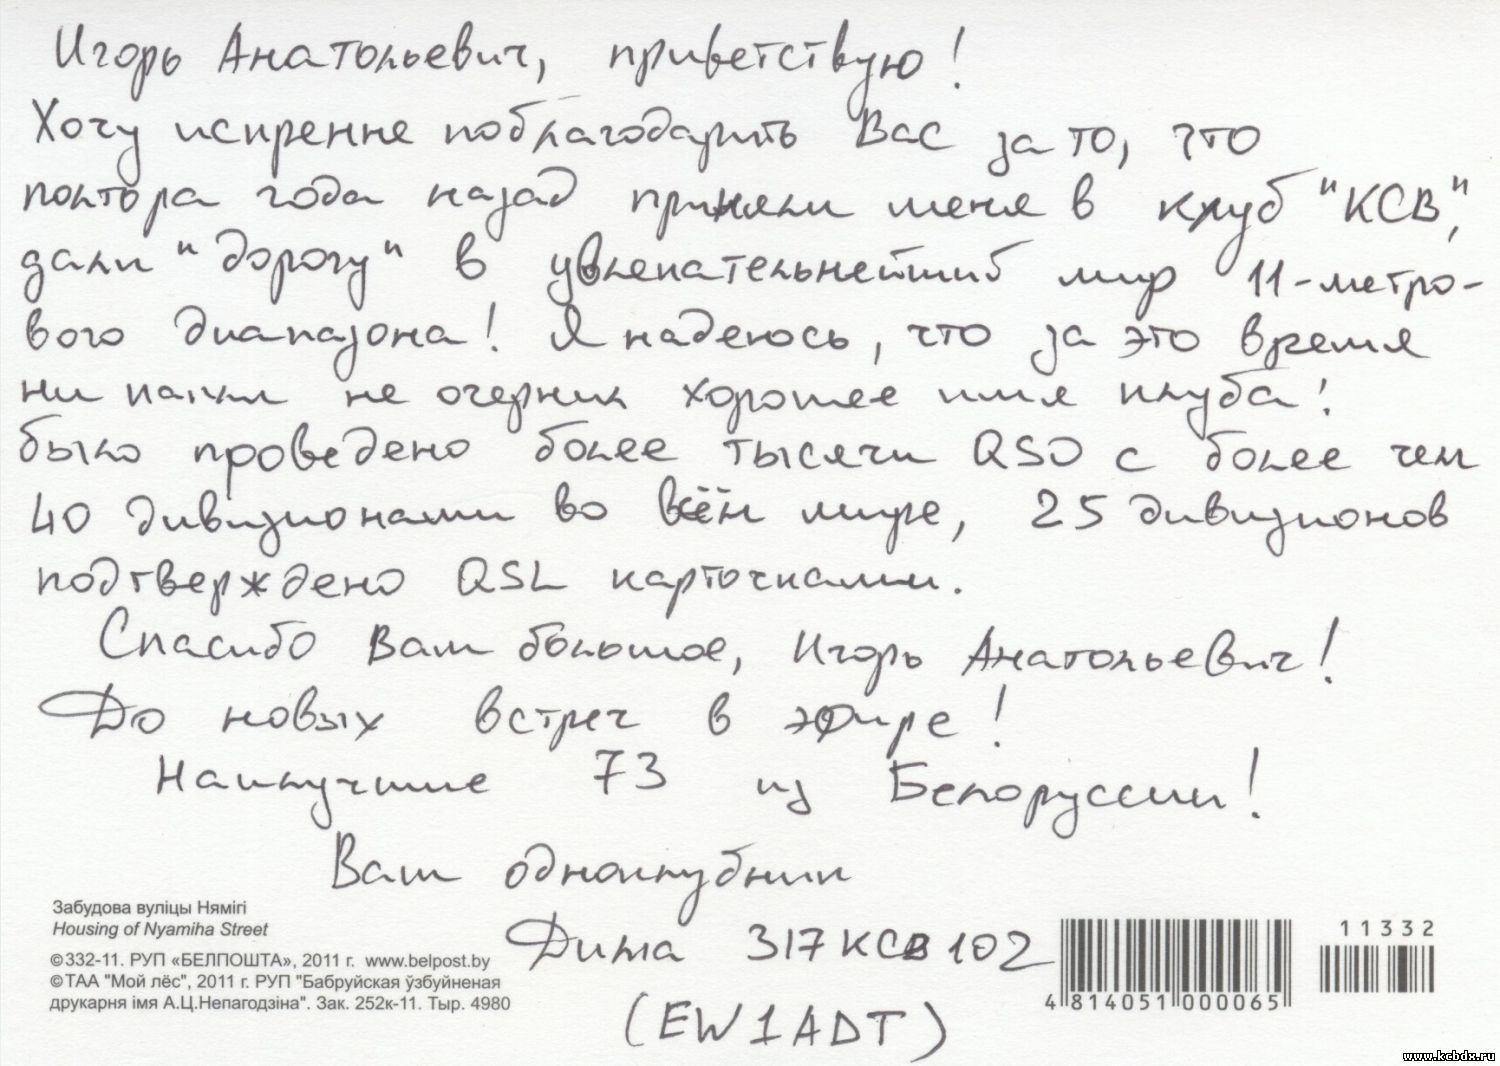 Игорь Анатольевич, приветствую!
Хочу искренне поблагодарить Вас за то, что
полтора года назад приняли меня в клуб "КСВ",
дали "дорогу" в увлекательнейший мир 11-метро-
вого диапазона! Я надеюсь, что за это время
ни не очернил хорошее имя клуба!
было проведено более тысячи QSO с более чем
40 дивизионами во всём мире, 25 дивизионов
подтверждено QSL карточками.
Спасибо Вам большое, Игорь Анатольевич!
До новых встреч в эфире!
Наилучшие 73 из Белоруссии!
Ваш одноклубник
Дима 317КСВ102
(EW1ADT)
Забудова вуліцы Нямігі
Housing of Nyamiha Street
©332-11. РУП «БЕЛПОШТА», 2011 г. www.belpost.by
©ТАА "Мой лёс", 2011 г. РУП "Бабруйская ўзбуйненая
друкарня імя А.Ц.Непагодзіна". Зак. 252к-11. Тыр. 4980
4 814051 000065
11332
www.kcbdx.ru